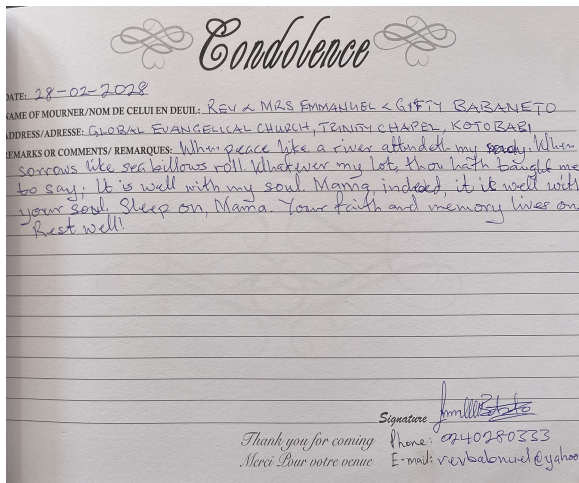 Condolence
DATE: 28-02-2028
NAME OF MOURNER/NOM DE CELUI EN DEUIL: REV & MRS EMMANUEL & GIFTY BABANETO
ADDRESS/ADRESSE: GLOBAL EVANGELICAL CHURCH, TRINITY CHAPEL, KOTOBABI
REMARKS OR COMMENTS/ REMARQUES: When peace like a river attendeth my way. When
sorrows like sea billows roll. Whatever my lot, thou hath taught me
to say; It is well with my soul. Mama, indeed, it is well with
your soul. Sleep on, Mama. Your faith and memory lives on
Rest well!
Signature
Thank you for coming Phone: 0240280333
Merci Pour votre venue E-mail: revbabnuel@yahoo